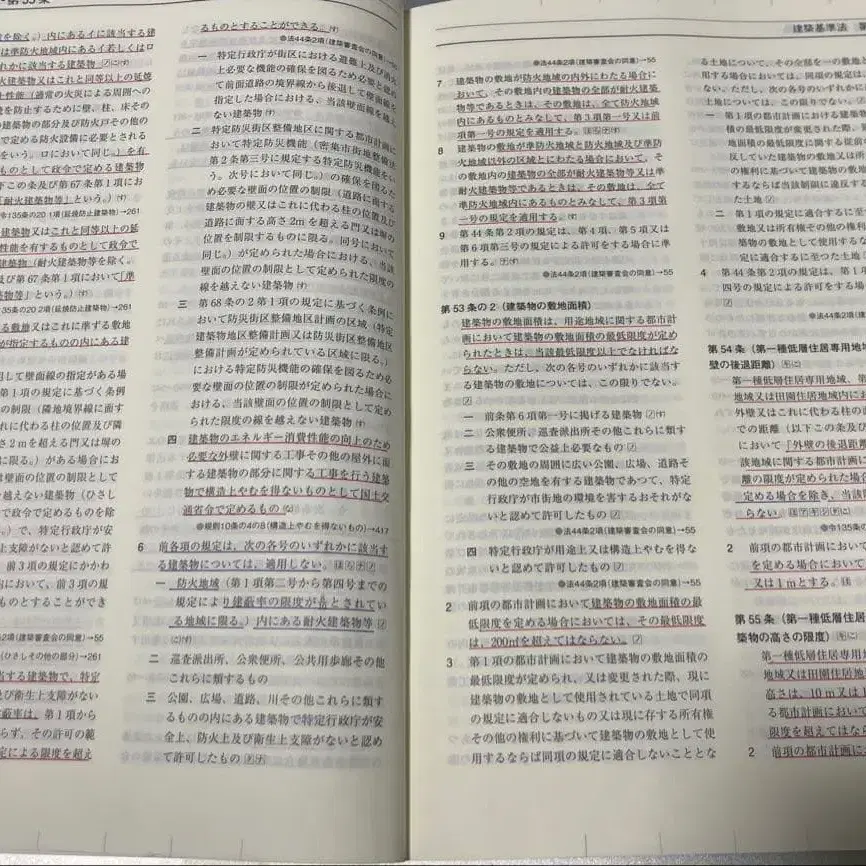 第53条
を除く。)内にあるイに該当する建
は準防火地域内にあるイ若しくはロ
れかに該当する建築物
火建築物又はこれと同等以上の延焼
性能(通常の火災による周囲への
を防止するために壁、柱、床その
の建築物の部分及び防火戸その他の
で定める防火設備に必要とされる
をいう。ロにおいて同じ。)を有
ものとして政令で定める建築物
下この条及び第67条第1項にお
「耐火建築物等」という。)
令135条の20 1項(延焼防止建築物)→261
建築物又はこれと同等以上の延
性能を有するものとして政令で
建築物(耐火建築物等を除く。
及び第67条第1項において「準
物等」という。)
135条の20 2項(延焼防止建築物)→261
る敷地又はこれに準ずる敷地
が指定するものの内にある建
定して壁面線の指定がある場
第1項の規定に基づく条例
の制限(隣地境界線に面す
れに代わる柱の位置及び隣
さ2mを超える門又は塀の
に限る。)がある場合にお
を越えない建築物(ひさし
で政令で定めるものを除
。)で、特定行政庁が安
上支障がないと認めて許
、前3項の規定にかかわ
内において、前3項の規
ものとすることができ
2項(建築審査会の同意)→55
(ひさしその他の部分)→261
当する建築物で、特定
及び衛生上支障がない
蔽率は、第1項から
らず、その許可の範
定による限度を超え
るものとすることができる。
●法44条2項(建築審査会の同意)→55
一 特定行政庁が街区における避難上及び消火
上必要な機能の確保を図るため必要と認め
て前面道路の境界線から後退して壁面線を
指定した場合における、当該壁面線を越え
ない建築物
二 特定防災街区整備地区に関する都市計画に
おいて特定防災機能(密集市街地整備法
第2条第三号に規定する特定防災機能をい
う。次号において同じ。)の確保を図るた
め必要な壁面の位置の制限(道路に面する
建築物の壁又はこれに代わる柱の位置及び
道路に面する高さ2mを超える門又は塀の
位置を制限するものに限る。同号において
同じ。)が定められた場合における、当該
壁面の位置の制限として定められた限度の
線を越えない建築物
三 第68条の2第1項の規定に基づく条例に
おいて防災街区整備地区計画の区域(特定
建築物地区整備計画又は防災街区整備地区
整備計画が定められている区域に限る。)
における特定防災機能の確保を図るため必
要な壁面の位置の制限が定められた場合に
おける、当該壁面の位置の制限として定め
られた限度の線を越えない建築物
四 建築物のエネルギー消費性能の向上のため
必要な外壁に関する工事その他の屋外に面
する建築物の部分に関する工事を行う建築
物で構造上やむを得ないものとして国土交
通省令で定めるもの
●規則10条の4の8(構造上やむを得ないもの)→417
6 前各項の規定は、次の各号のいずれかに該当す
る建築物については、適用しない。
一 防火地域(第1項第二号から第四号までの
規定により建蔽率の限度が とされてい
る地域に限る。)内にある耐火建築物等
二 巡査派出所、公衆便所、公共用歩廊その他
これらに類するもの
三 公園、広場、道路、川その他これらに類す
るものの内にある建築物で特定行政庁が安
全上、防火上及び衛生上支障がないと認め
て許可したもの
建築基準法 第
●法44条2項(建築審査会の同意)→55
7 建築物の敷地が防火地域の内外にわたる場合に
おいて、その敷地内の建築物の全部が耐火建築
物等であるときは、その敷地は、全て防火地域
内にあるものとみなして、第3項第一号又は前
項第一号の規定を適用する。
8 建築物の敷地が準防火地域と防火地域及び準防
火地域以外の区域とにわたる場合において、そ
の敷地内の建築物の全部が耐火建築物等又は準
耐火建築物等であるときは、その敷地は、全て
準防火地域内にあるものとみなして、第3項第
一号の規定を適用する。
9 第44条第2項の規定は、第4項、第5項又は
第6項第三号の規定による許可をする場合に準
用する。
●法44条2項(建築審査会の同意)→55
第53条の2(建築物の敷地面積)
建築物の敷地面積は、用途地域に関する都市計
画において建築物の敷地面積の最低限度が定め
られたときは、当該最低限度以上でなければな
らない。ただし、次の各号のいずれかに該当す
る建築物の敷地については、この限りでない。
一 前条第6項第一号に掲げる建築物
二 公衆便所、巡査派出所その他これらに類す
る建築物で公益上必要なもの
三 その敷地の周囲に広い公園、広場、道路そ
の他の空地を有する建築物であつて、特定
行政庁が市街地の環境を害するおそれがな
いと認めて許可したもの
●法44条2項(建築審査会の同意)→55
四 特定行政庁が用途上又は構造上やむを得な
いと認めて許可したもの
●法44条2項(建築審査会の同意)→55
2 前項の都市計画において建築物の敷地面積の最
低限度を定める場合においては、その最低限度
は、200㎡を超えてはならない。
3 第1項の都市計画において建築物の敷地面積の
最低限度が定められ、又は変更された際、現に
建築物の敷地として使用されている土地で同項
の規定に適合しないもの又は現に存する所有権
その他の権利に基づいて建築物の敷地として使
用するならば同項の規定に適合しないこととな
る土地について、その全部を一の敷地と
用する場合においては、同項の規定は
ない。ただし、次の各号のいずれかに
土地については、この限りでない。
一 第1項の都市計画における建築物
積の最低限度が変更された際、
地面積の最低限度に関する従前の
反していた建築物の敷地又は所
の権利に基づいて建築物の敷地
するならば当該制限に違反す
た土地
二 第1項の規定に適合するに至
敷地又は所有権その他の権利
築物の敷地として使用するな
定に適合するに至つた土地
4 第44条第2項の規定は、第1
四号の規定による許可をする場
●法44条2項(
第54条(第一種低層住居専用地域
壁の後退距離)
第一種低層住居専用地域、第
地域又は田園住居地域内にお
外壁又はこれに代わる柱の
での距離(以下この条及び
において「外壁の後退距離
該地域に関する都市計画に
離の限度が定められた場合
定める場合を除き、当該
らない。
●令135条の
2 前項の都市計画において
を定める場合において
又は1mとする。
第55条(第一種低層住居
築物の高さの限度)
第一種低層住居専用地
地域又は田園住居地
高さは、10m又は1
る都市計画において
限度を超えてはなら
2 前項の都市計画に